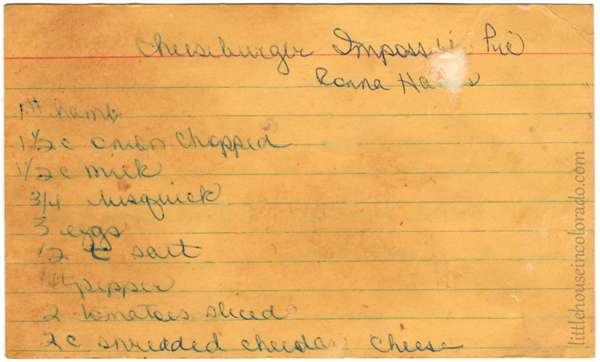 Cheeseburger Impossible Pie
Ronna
1# hamb
1 1/2 c onion chopped
1 1/2 c milk
3/4 bisquick
3 eggs
1/2 t salt
1/4 pepper
2 tomatoes sliced
2 c shredded chedar cheese
littlehouseincolorado.com